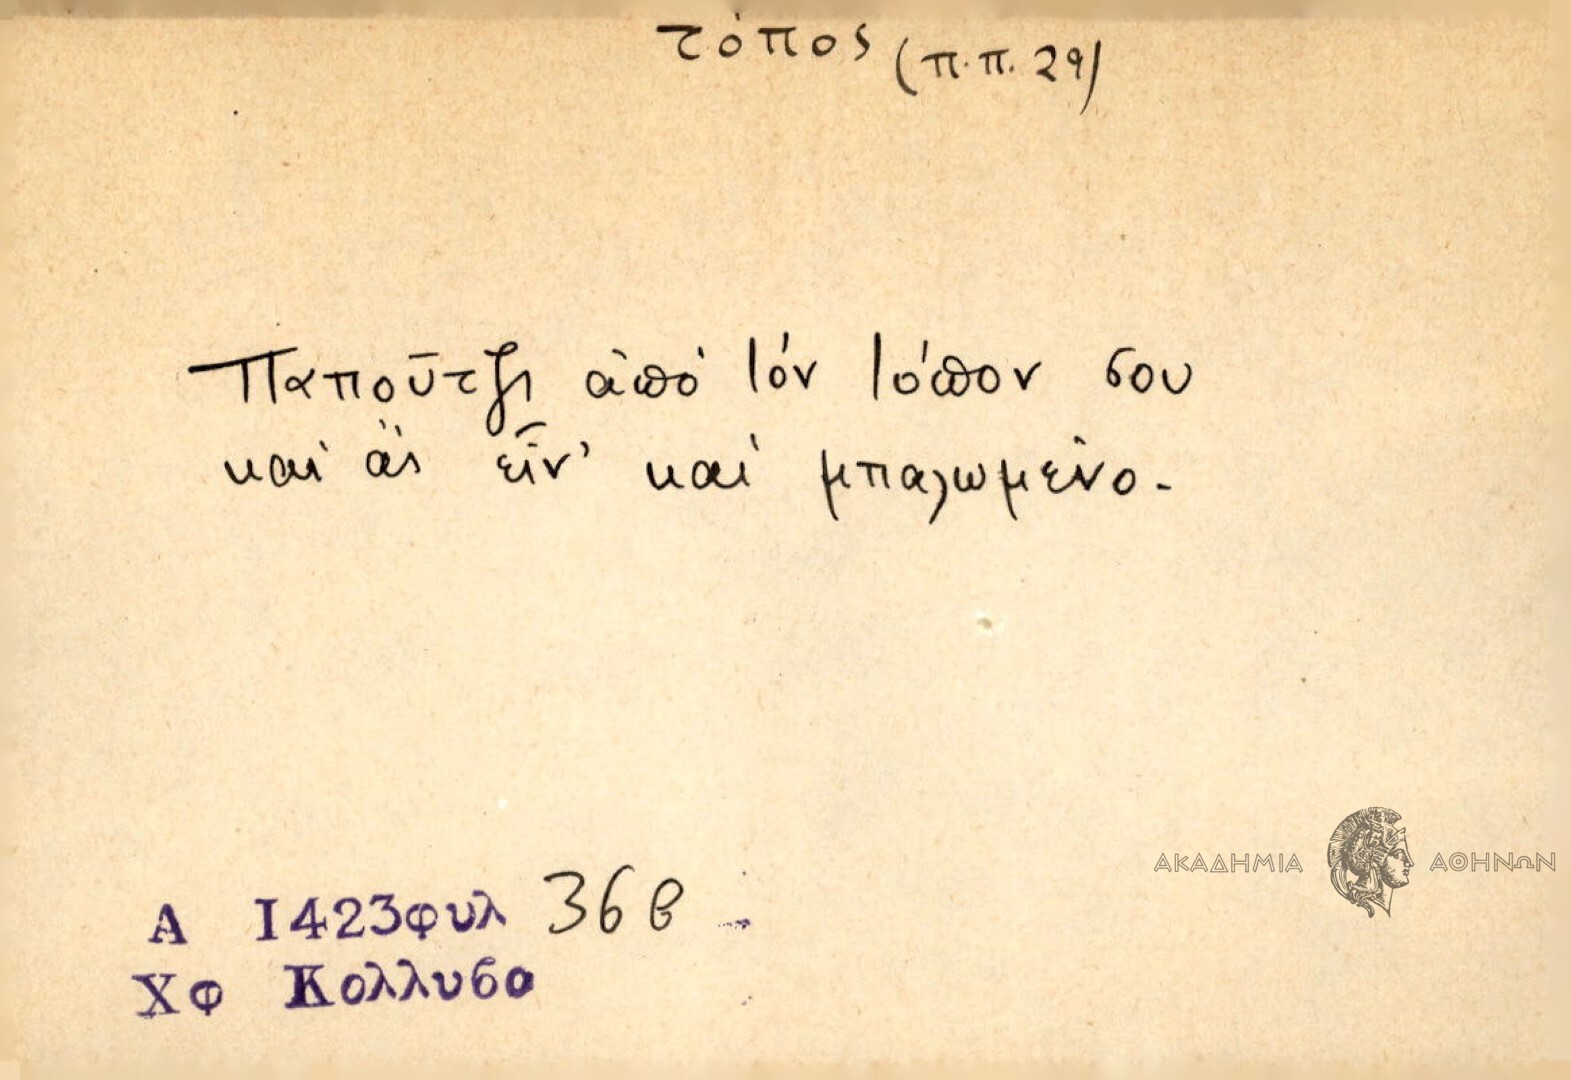 τόπος (π.π. 29)
Παποῦτζι ἀπὸ τόν τόπον σου
καὶ ἂς εἶν' καὶ μπαλωμένο.
ΑΚΑΔΗΜΙΑ ΑΘΗΝΩΝ
Α 1423φυλ 36β
Χφ Κολλυβα